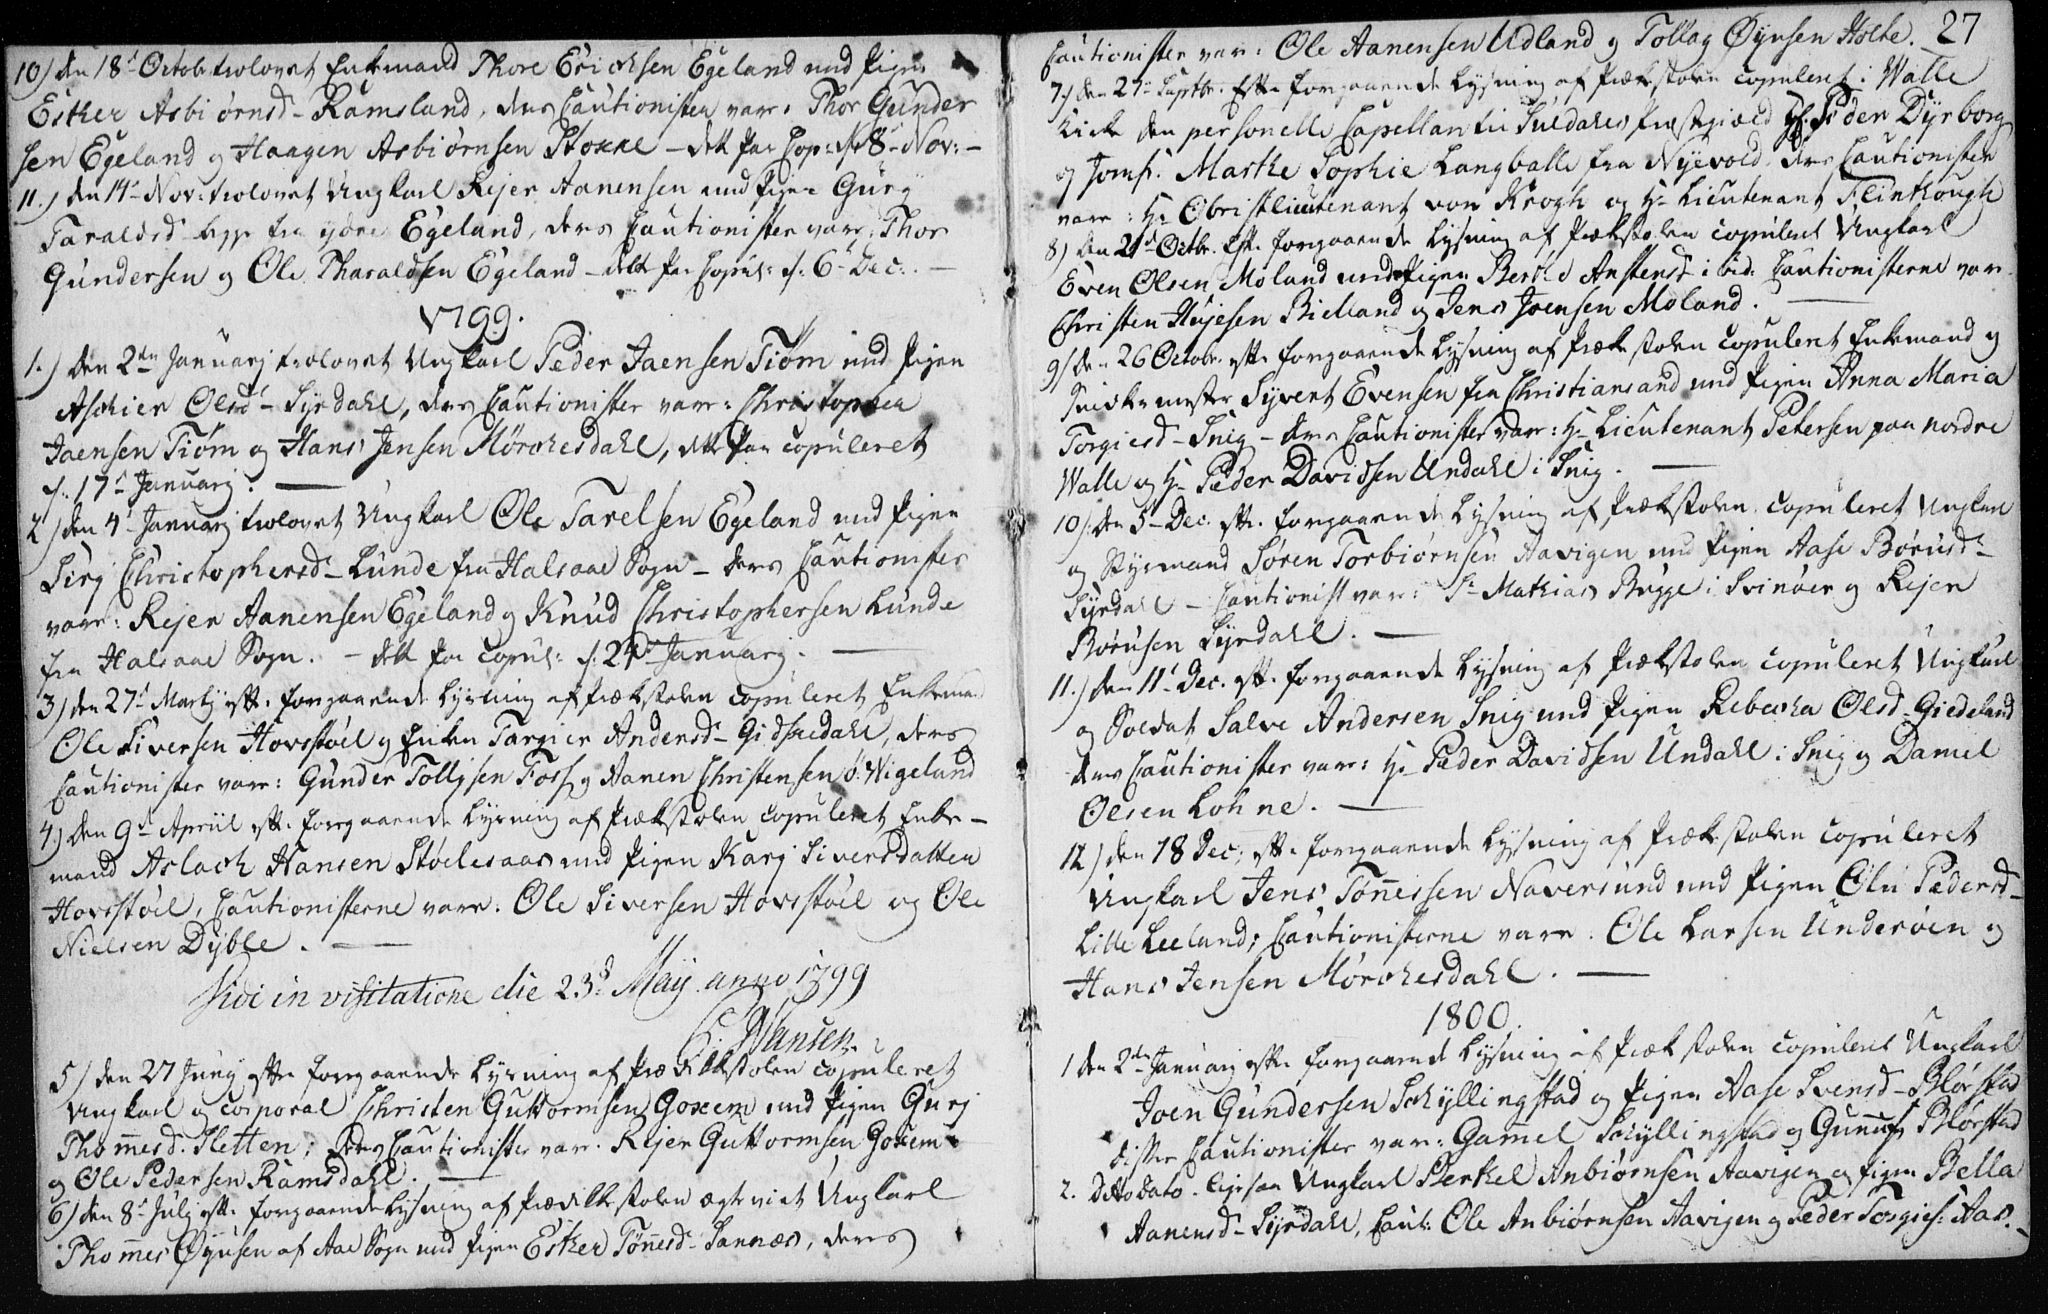 10) den 18d Octob: trolovet Enkemand Thore Erichsen Egeland med Pigen
Esther Asbiørnsd- Ramsland, deres Cautionister var: Thor Gunder
sen Egeland og Haagen Asbiørnsen Stokke - dette Par Cop: d: 8d Nov: -
11.) den 14d Nov: trolovet Ungkarl Rejer Aanensen med Pigen Gurj
Taraldsd- fra ydre Egeland, deres Cautionister var: Thor
Gundersen og Ole Tharaldsen Egeland - dette Par Copul: d: 6d Dec: -
1799.
1.) den 2den Januarj trolovet Ungkarl Peder Jaensen Tiøm med Pigen
Aschier Olsd- Syrdahl, deres Cautionister vare: Christopher
Jaensen Tiøm og Hans Jensen Mørchesdahl, dette Par copuleret
d: 17d Januarj.
2) den 4d Januarj trolovet Ungkarl Ole Tarelsen Egeland med Pigen
Sirj Christophersd- Lunde fra Halsaae Sogn - deres Cautionister
vare: Rejer Aanensen Egeland og Knud Christophersen Lunde
fra Halsaae Sogn. - dette Par copul: d: 24d Januarj.
3) den 27d Martj efter forgaaende Lysning af Prækestolen copuleret Enkemand
Ole Siversen Hovsstøel og Enken Targier Andersd- Gidskedahl, deres
Cautionister vare: Gunder Tollefsen Foss og Aanen Christensen ø: Wigeland
4.) den 9d Apriil efter forgaaende Lysning af Prækestolen copuleret Enke-
mand Aslach Hansen Støelesaas med Pigen Karj Siversdatter
Hovsstøel, Cautionisterne vare: Ole Siversen Hovsstøel og Ole
Nielsen Dyble.
Vidi in visitatione die 23d Maij anno 1799
Hansen.
5) den 27 Junj efter forgaaende Lysning af Prædikestolen copuleret
Ungkarl og Corporal Christen Guttormsen Goxem med Pigen Gurj
Thomesd. Sletten; deres Cautionister var: Rejer Guttormsen Goxem
og Ole Pedersen Ramsdahl.
6) den 8d Julj efter forgaaende Lysning af Prædikestolen ægteviet Ungkarl
Thomes Øynsen af Aae Sogn med Pigen Esther Tønnesd- Sannæs, deres
27
Cautionister var: Ole Aanensen Udland og Tollag Øynsen Holte.
7.) den 27d Septbr. Efter forgaaende Lysning af Prækestolen copuleret i Walle
Kirke den personelle Capellan til Suldahls Præstegield Hr. Peder Dyrborg
og Jomfr. Marthe Sophie Langballe fra Nyevold, deres Cautionister
vare: Hr Obristlieutenant von Krogh og Hr Lieutenant Flinthough
8) den 21d Octbr. Efter forgaaende Lysning af Prækestolen copuleret Ungkarl
Even Olsen Moland med Pigen Berthe Anstensd- ibid. Cautionisterne var
Christen Hujesen Bielland og Jens Joensen Moland.
9) den 26 Octobr. efter forgaaende Lysning af Prækestolen copuleret Enkemand og
Snedkermester Syvert Evensen fra Christiansand med Pigen Anna Maria
Torgiersd- Snig - deres Cautionister vare: Hr Lieutenant Petersen paa nordre
Walle og Hr Peder Davidsen Undahl i Snig.
10) den 5- Dec. efter forgaaende Lysning af Prækestolen copuleret Ungkarl
og Styrmand Søren Torbiørnsen Aavigen med Pigen Aase Børusd-
Syrdahl - Cautionist var: Sr Mathias Brygge i Svinøer og Rejer
Børusen Syrdahl.
11.) den 11d Dec. efter forgaaende Lysning af Prækestolen copuleret Ungkarl
og Soldat Salve Andersen Snig med Pigen Rebecka Olsd- Giedeland
deres Cautionister vare: Hr Peder Davidsen Undahl i Snig og Daniel
Olsen Lohne.
12) den 18 Dec: efter forgaaende Lysning af Prækestolen copuleret
Ungkarl Jens Tønnessen Naversund med Pigen Olu Pedersd-
Lille Leeland; Cautionisterne vare: Ole Larsen Underøen og
Hans Jensen Mørchesdahl.
1800
1 den 2den Januarj efter forgaaende Lysning af Prækestolen copuleret Ungkarl
Joen Gundersen Schyllingstad og Pigen Aase Svensd- Blørstad
disses Cautionister var: Gamel Schyllingstad og Gunuf Blørstad
2. Ditto Dato. ligesaa Ungkarl Berkel Anbiørnsen Aavigen og Pigen Bella
Aanensd- Syrdahl, Caut: Ole Anbiørnsen Aavigen og Peder Torgies: Aas.